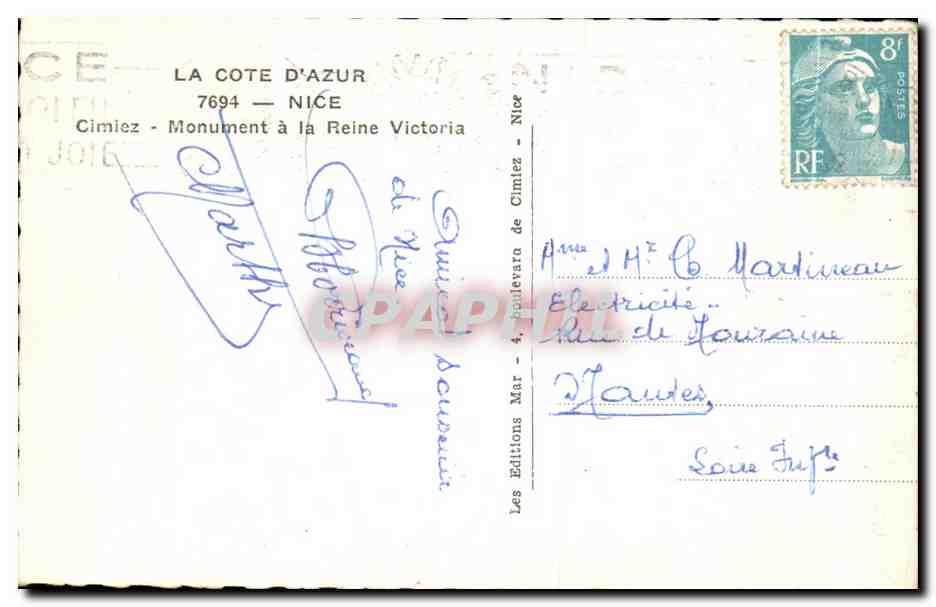 LA COTE D'AZUR
7694 — NICE
Cimiez - Monument à la Reine Victoria
Amical souvenir
de Nice
Marthe
Les Editions Mar - 4, boulevard de Cimiez - Nice
8f
POSTES
RF
Mme et Mr Martineau
Electricité
Rue de Touraine
Nantes
Loire Infre
CPAPHIL